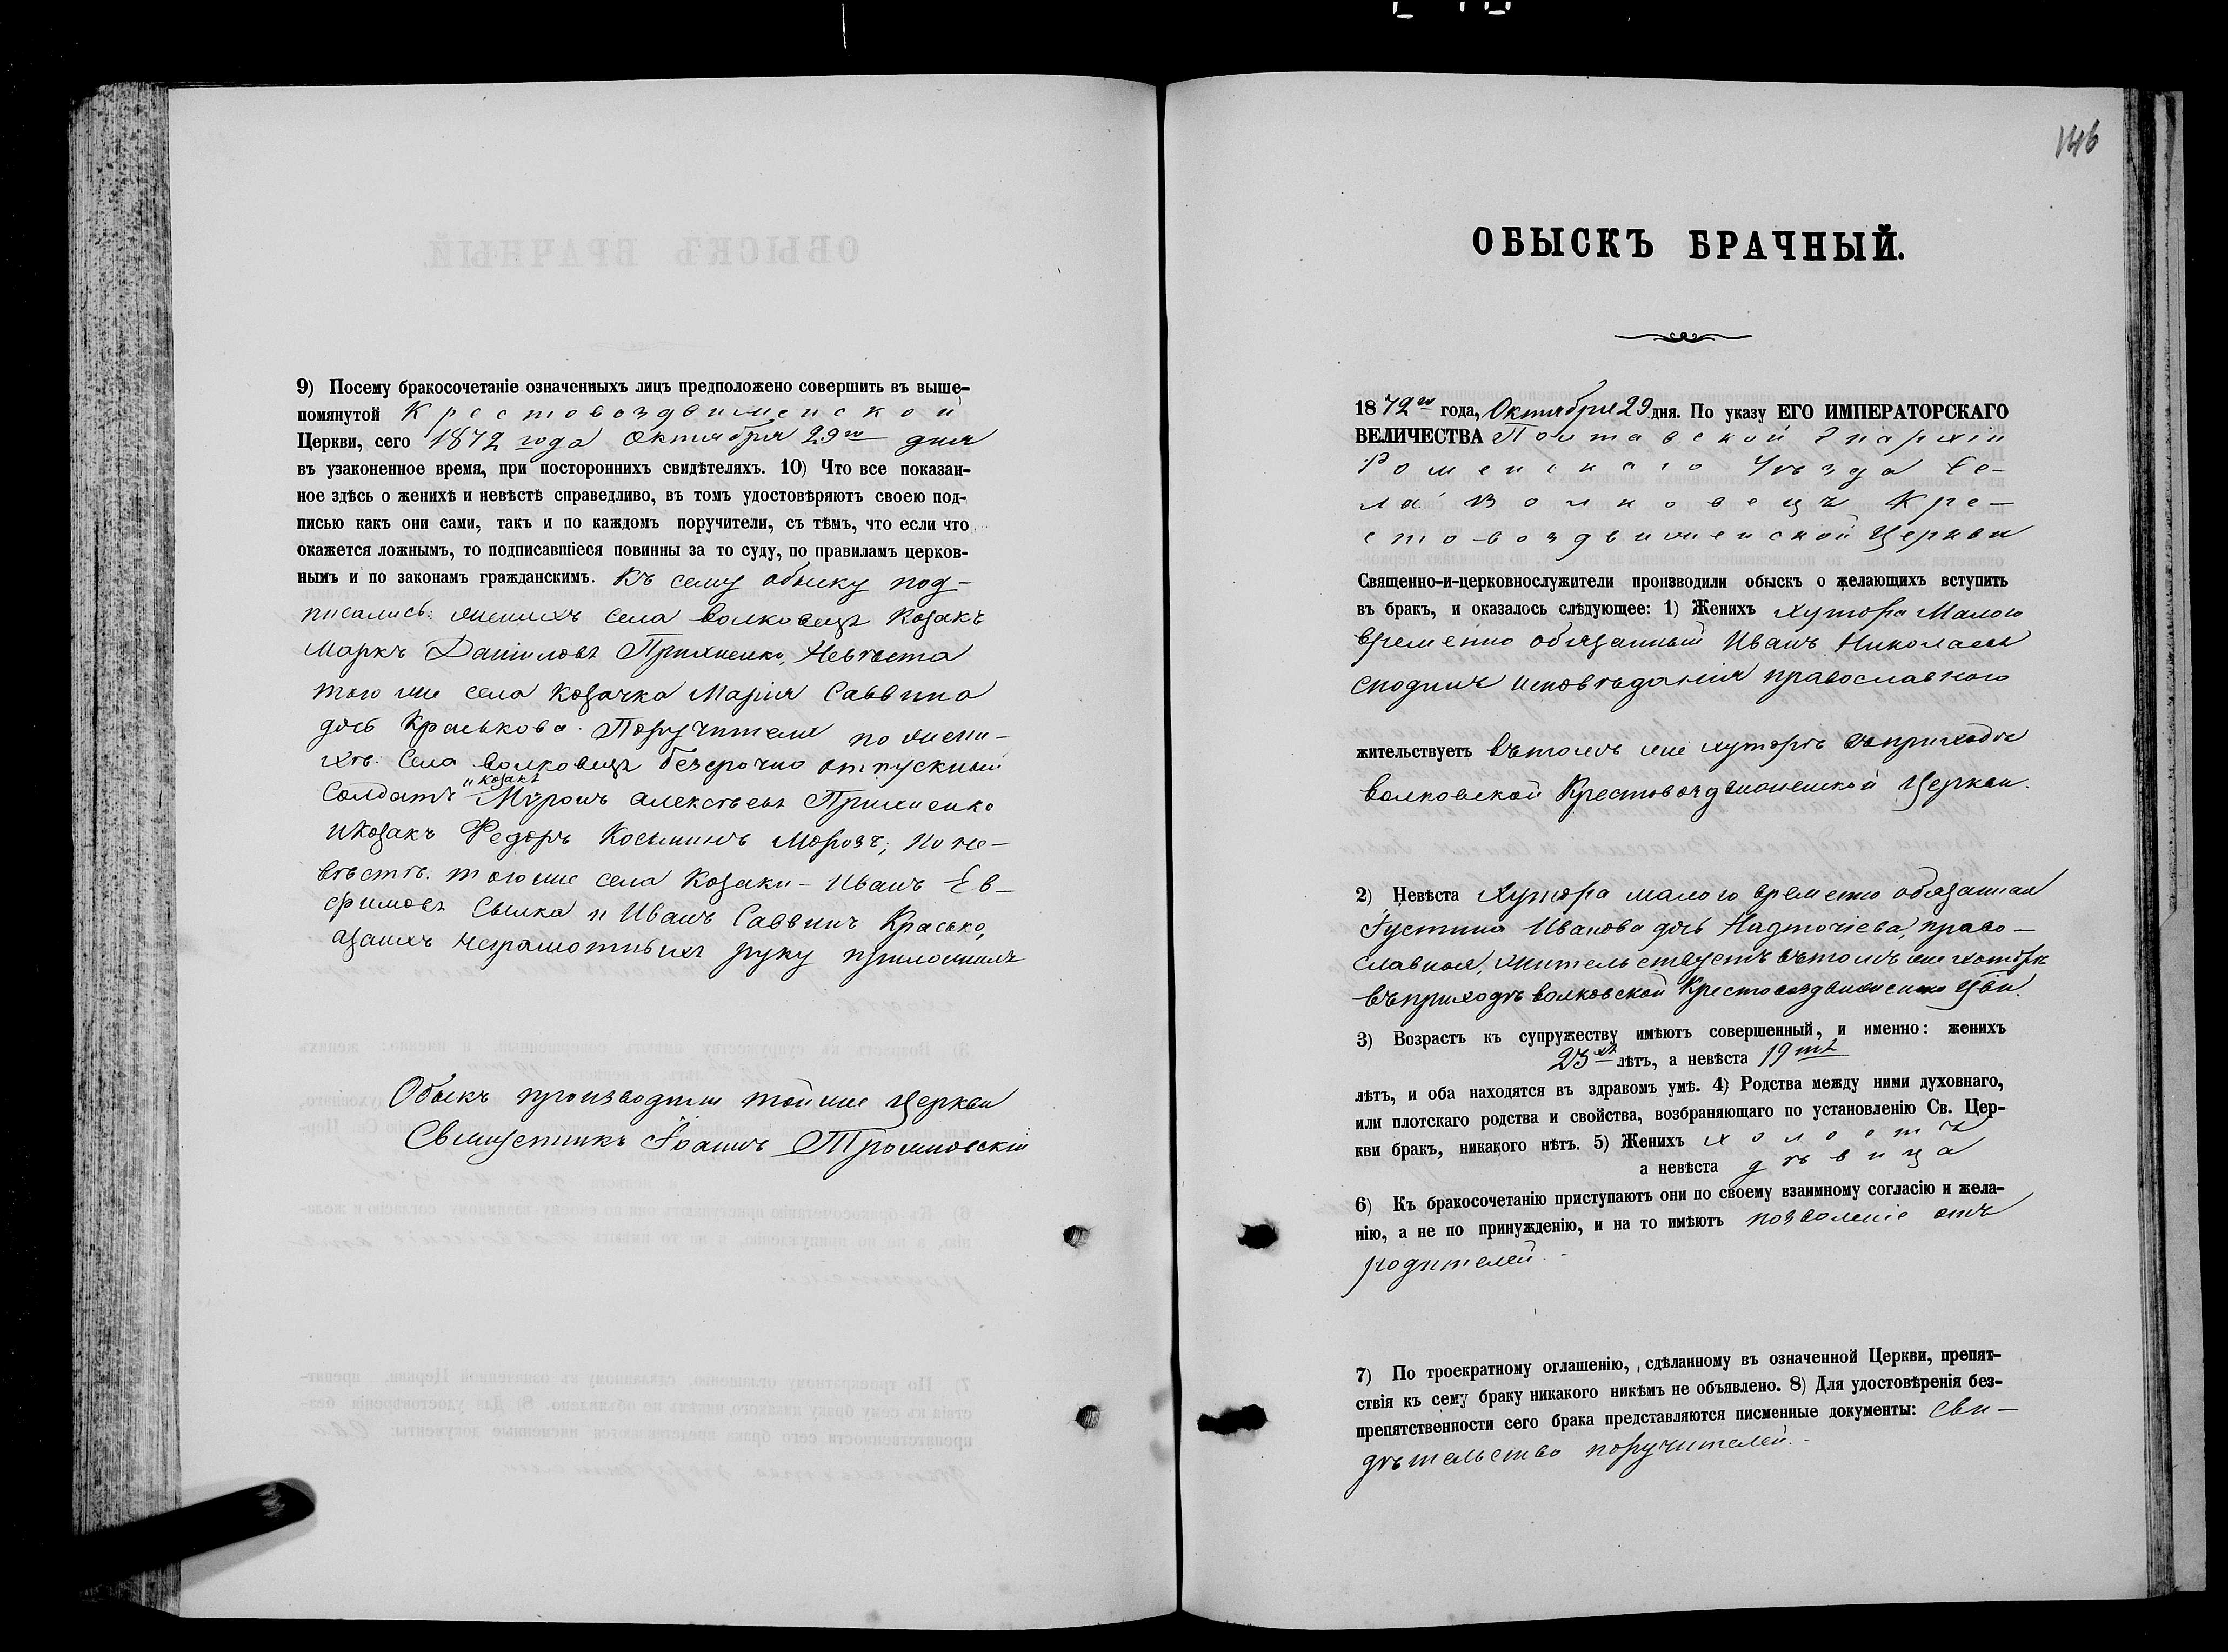 9) Посему бракосочетаніе означенныхъ лицъ предположено совершить въ выше-
помянутой Крестовоздвиженской
Церкви, сего 1872 года Октября 29го дня
въ узаконенное время, при постороннихъ свидѣтеляхъ. 10) Что все показан-
ное здѣсь о женихѣ и невѣстѣ справедливо, въ томъ удостовѣряютъ своею под-
писью какъ они сами, такъ и по каждомъ поручители, съ тѣмъ, что если что
окажется ложнымъ, то подписавшіеся повинны за то суду, по правиламъ церков-
нымъ и по законамъ гражданскимъ. Къ сему обыску под-
писались: женихъ села Волковецъ Козакъ
Маркъ Даніиловъ Прихненко, Невѣста
того же села Козачка Марія Саввина
дочь Краськова. Поручители по жени-
хѣ: Села Волковецъ безсрочно отпускный
Солдатъ "козакъ Мѵронъ Алексѣевъ Прихненко
и Козакъ Федоръ Косьминъ Морозъ; по не-
вѣстѣ: того же села Козаки - Иванъ Ев-
фимовъ Сылка и Иванъ Саввинъ Красько,
а за нихъ неграмотныхъ руку приложилъ
Обыскъ производили той же Церкви
Священникъ Іоаннъ Тройновскій
146
ОБЫСКЪ БРАЧНЫЙ.
1872го года, Октября 29 дня. По указу ЕГО ИМПЕРАТОРСКАГО
ВЕЛИЧЕСТВА Полтавской Епархіи
Роменскаго Уѣзда Се-
ла Волковецъ Кре-
стовоздвиженской Церкви
Священно-и-церковнослужители производили обыскъ о желающихъ вступить
въ бракъ, и оказалось слѣдующее: 1) Женихъ Хутора Малого
временно обязанный Иванъ Николаевъ
Сподинъ исповѣданія православного
жительствуетъ въ томъ же хуторѣ въ приходѣ
Волковской Крестовоздвиженской Церкви.
2) Невѣста Хутора малого временно обязанная
Іустина Иванова дочь Надточіева, право-
славная, жительствуетъ въ томъ же хуторѣ
въ приходѣ Волковской Крестовоздвиженской Цви.
3) Возрастъ къ супружеству имѣютъ совершенный, и именно: женихъ
23хъ лѣтъ, а невѣста 19ть
лѣтъ, и оба находятся въ здравомъ умѣ. 4) Родства между ними духовнаго,
или плотскаго родства и свойства, возбраняющаго по установленію Св. Цер-
кви бракъ, никакого нѣтъ. 5) Женихъ холостъ
а невѣста дѣвица
6) Къ бракосочетанію приступаютъ они по своему взаимному согласію и жела-
нію, а не по принужденію, и на то имѣютъ позволеніе отъ
родителей.
7) По троекратному оглашенію, сдѣланному въ означенной Церкви, препят-
ствія къ сему браку никакого никѣмъ не объявлено. 8) Для удостовѣренія без-
препятственности сего брака представляются писменные документы: Сви-
дѣтельство поручителей.